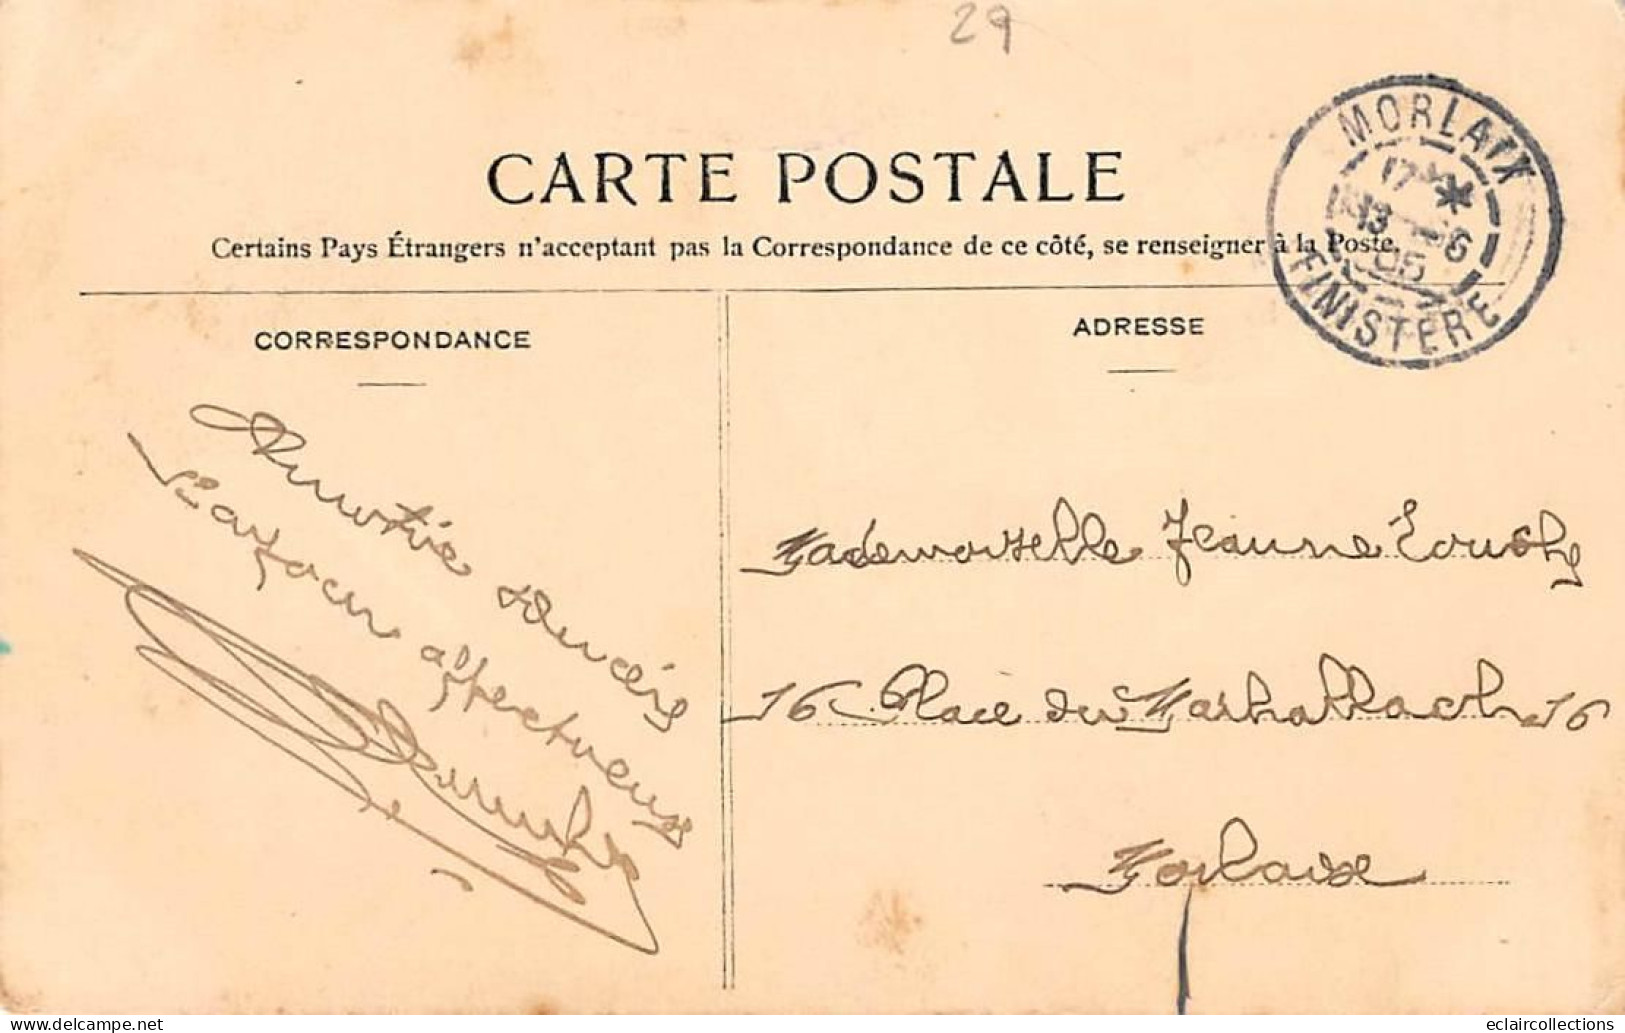 29
CARTE POSTALE
Certains Pays Étrangers n'acceptant pas la Correspondance de ce côté, se renseigner à la Poste.
MORLAIX
17 *
13 - 6
05
FINISTERE
CORRESPONDANCE
Amitié sincère
affectueux
ADRESSE
Mademoiselle Jeanne
16 Place du Marhallach 16
Morlaix
delcampe.net
eclaircollections